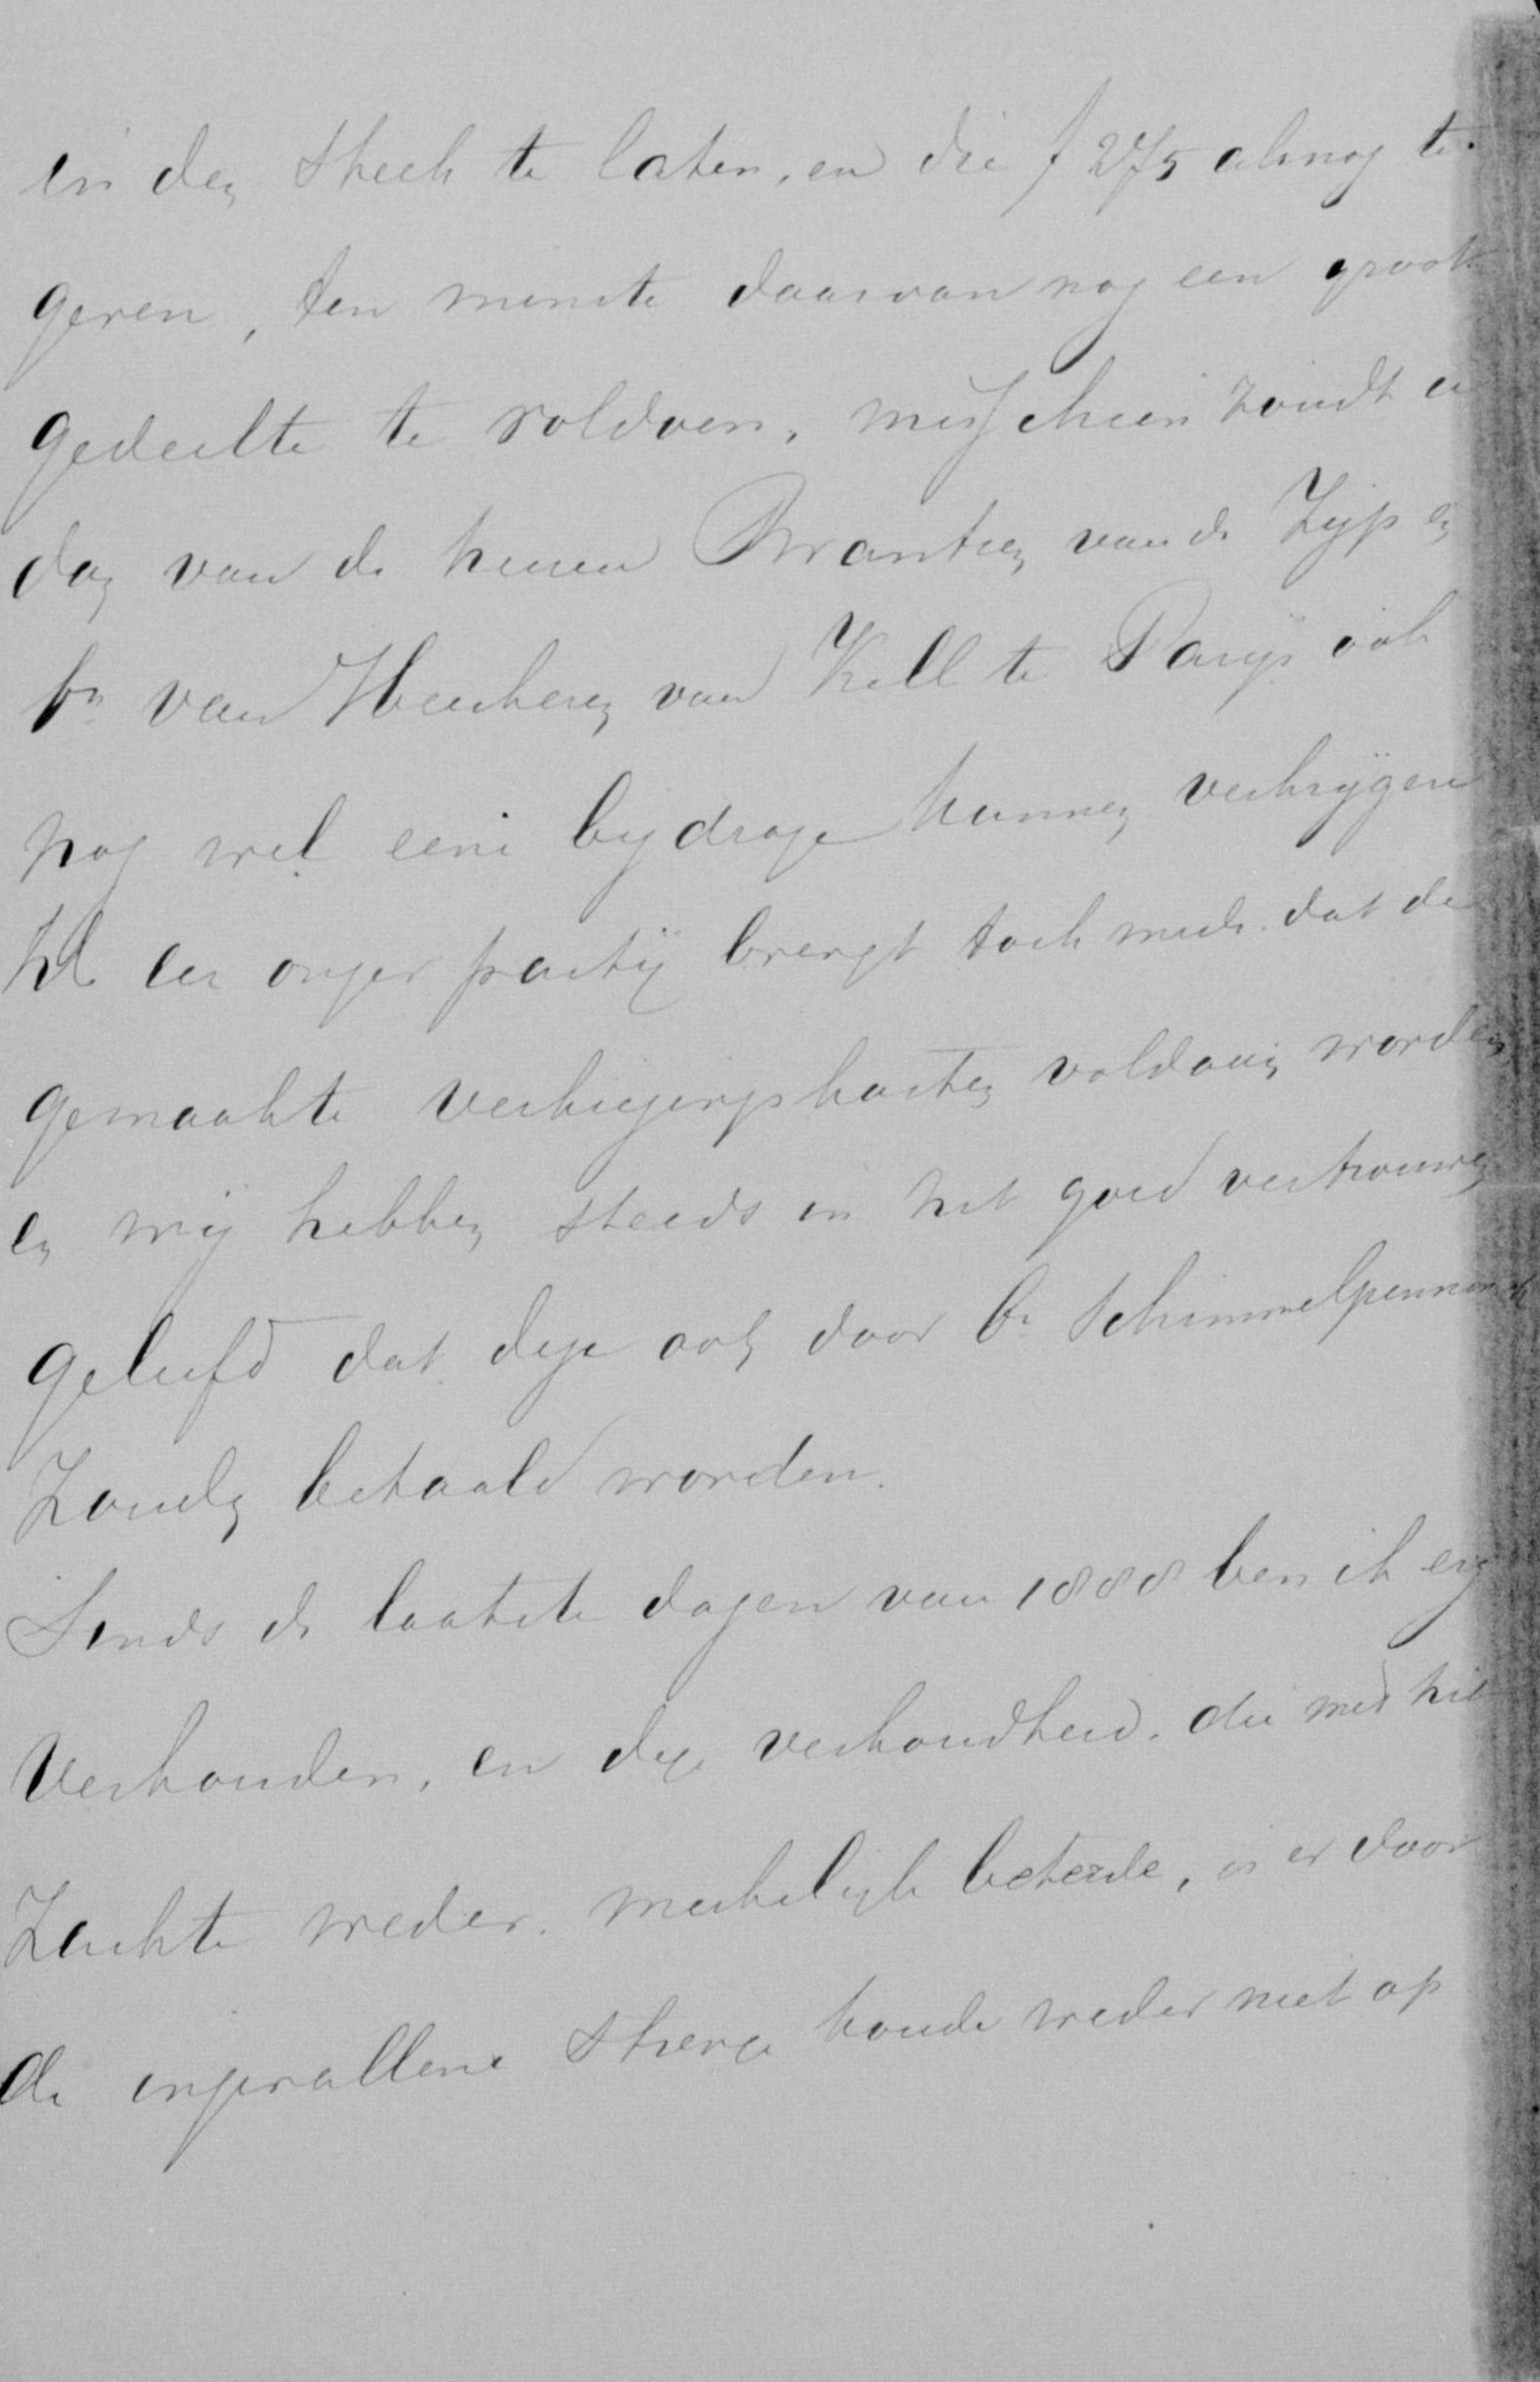 in den steek te laten, en die f 275 alsnog te
geven, ten minste daarvan nog een groot
gedeelte te voldoen, misschien zoudt u
dag van de heeren Brantsen van de Zyp en
bn van Heeckeren van Kell te Parijs ook
nog wel eene bijdrage kunnen verkrijgen
de eer onzer partij brengt toch mede dat de
gemaakte verkiezingskosten voldaan worden
en wij hebben steeds in het goed vertrouwen
geleefd dat deze ook door bn Schimmelpenninck
Zouden betaald worden.
Sinds de laatste dagen van 1888 ben ik erg
Verkouden, en deze verkoudheid, die met het
Zachte weder merkelijk beterde, is er door
de ingevallene strenge koude weder niet op